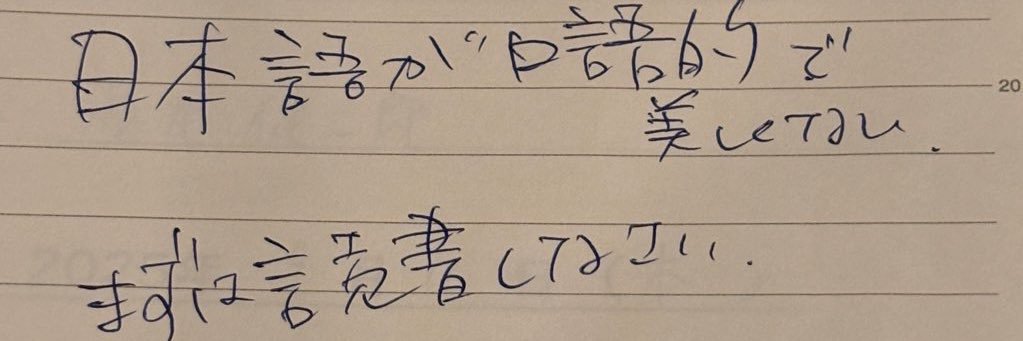 日本語が口語的で
20
美しくない.
まずは読書しなさい.